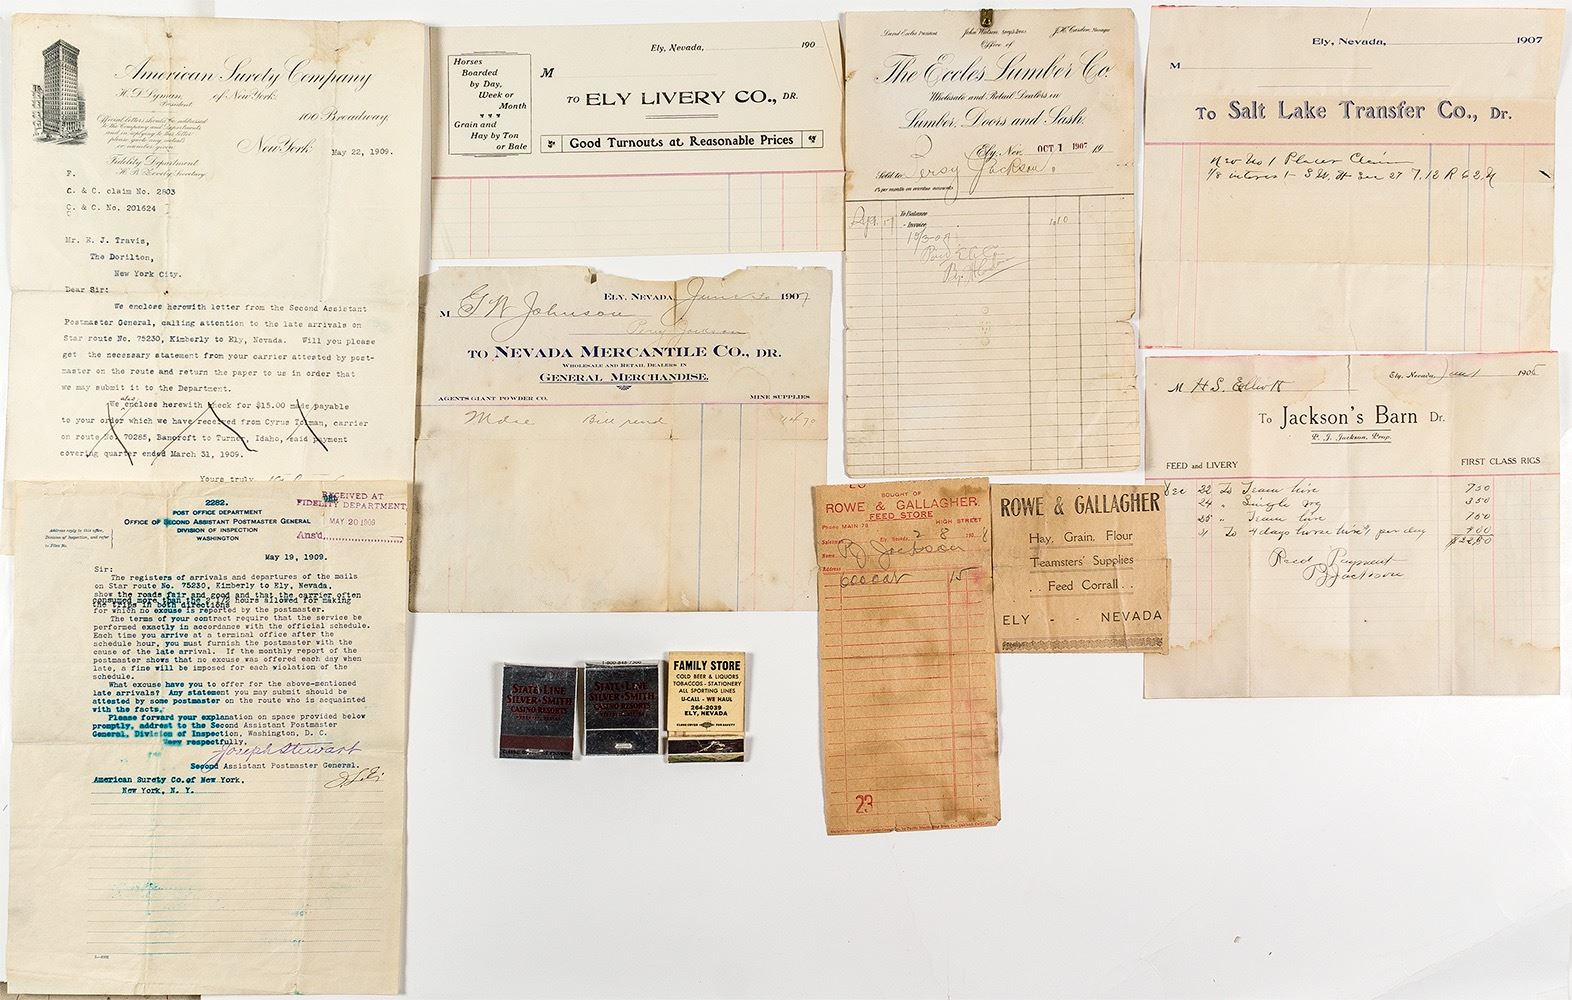 American Surety Company
of New York.
H. D. Lyman,
President
Official letters should be addressed
to the Company and Departments
and in replying to this letter
please quote any initials
or number given
100 Broadway.
New York. May 22, 1909.
Fidelity Department
H. B. Zevely, Secretary
F.
C. & C. claim No. 2803
C. & C. No. 201624
Mr. E. J. Travis,
The Dorilton,
New York City.
Dear Sir:
We enclose herewith letter from the Second Assistant
Postmaster General, calling attention to the late arrivals on
Star route No. 75230, Kimberly to Ely, Nevada. Will you please
get the necessary statement from your carrier attested by post-
master on the route and return the paper to us in order that
we may submit it to the Department.
We also enclose herewith check for $15.00 made payable
to your order which we have received from Cyrus Tolman, carrier
on route No. 70285, Bancroft to Turner, Idaho, said payment
covering quarter ended March 31, 1909.
Yours truly,
2282.
POST OFFICE DEPARTMENT
OFFICE OF SECOND ASSISTANT POSTMASTER GENERAL
DIVISION OF INSPECTION
WASHINGTON
Address reply to this office,
Division of Inspection, and refer
to Files No.
RECEIVED AT
FIDELITY DEPARTMENT,
MAY 20 1909
Ans'd
May 19, 1909.
Sir:
The registers of arrivals and departures of the mails
on Star route No. 75230, Kimberly to Ely, Nevada,
show the roads fair and good and that the carrier often
consumed more than the 2 1/2 hours allowed for making
the trips in both directions
for which no excuse is reported by the postmaster.
The terms of your contract require that the service be
performed exactly in accordance with the official schedule.
Each time you arrive at a terminal office after the
schedule hour, you must furnish the postmaster with the
cause of the late arrival. If the monthly report of the
postmaster shows that no excuse was offered each day when
late, a fine will be imposed for each violation of the
schedule.
What excuse have you to offer for the above-mentioned
late arrivals? Any statement you may submit should be
attested by some postmaster on the route who is acquainted
with the facts.
Please forward your explanation on space provided below
promptly, address to the Second Assistant Postmaster
General, Division of Inspection, Washington, D. C.
Very respectfully,
Joseph Stewart
Second Assistant Postmaster General.
American Surety Co. of New York,
New York, N. Y.
Horses
Boarded
by Day,
Week or
Month
Grain and
Hay by Ton
or Bale
Ely, Nevada, 190
M
TO ELY LIVERY CO., DR.
Good Turnouts at Reasonable Prices
ELY, NEVADA, June 30 1907
M G W Johnson
Percy Jackson
TO NEVADA MERCANTILE CO., DR.
WHOLESALE AND RETAIL DEALERS IN
GENERAL MERCHANDISE.
AGENTS GIANT POWDER CO. MINE SUPPLIES
Mdse Bill rend
David Eccles President John Watson, Secy & Treas. J.H. Carden, Manager
Office of
The Eccles Lumber Co.
Wholesale and Retail Dealers in
Lumber, Doors and Sash.
Ely, Nev. OCT 1 1907 19
Sold to Percy Jackson.
1% per month on overdue accounts
Sept. 17 To Balance
" Invoice
Ely, Nevada, 1907
M
TO Salt Lake Transfer Co., Dr.
New No 1 Placer Claim
1/8 interest
Ely, Nevada, 1905
M H S. Elliott
To Jackson's Barn Dr.
P. J. Jackson, Prop.
FEED and LIVERY FIRST CLASS RIGS
Dec 22 To Team hire 7 50
24 " Single rig 3 50
25 " Team hire
To 4 days horse hire per day
Recd Payment
P Jackson
BOUGHT OF
ROWE & GALLAGHER,
FEED STORE
Phone MAIN 78 HIGH STREET
Salesman Ely Nevada, 2 8 190 8
Name P J Jackson
Address
15
23
ROWE & GALLAGHER
Hay, Grain, Flour
Teamsters' Supplies
. . Feed Corrall . .
ELY - - NEVADA
STATE LINE
SILVER SMITH
CASINO RESORTS
1-800-848-7300
STATE LINE
SILVER SMITH
CASINO RESORTS
FAMILY STORE
COLD BEER & LIQUORS
TOBACCOS - STATIONERY
ALL SPORTING LINES
U-CALL - WE HAUL
264-2039
ELY, NEVADA
CLOSE COVER FOR SAFETY